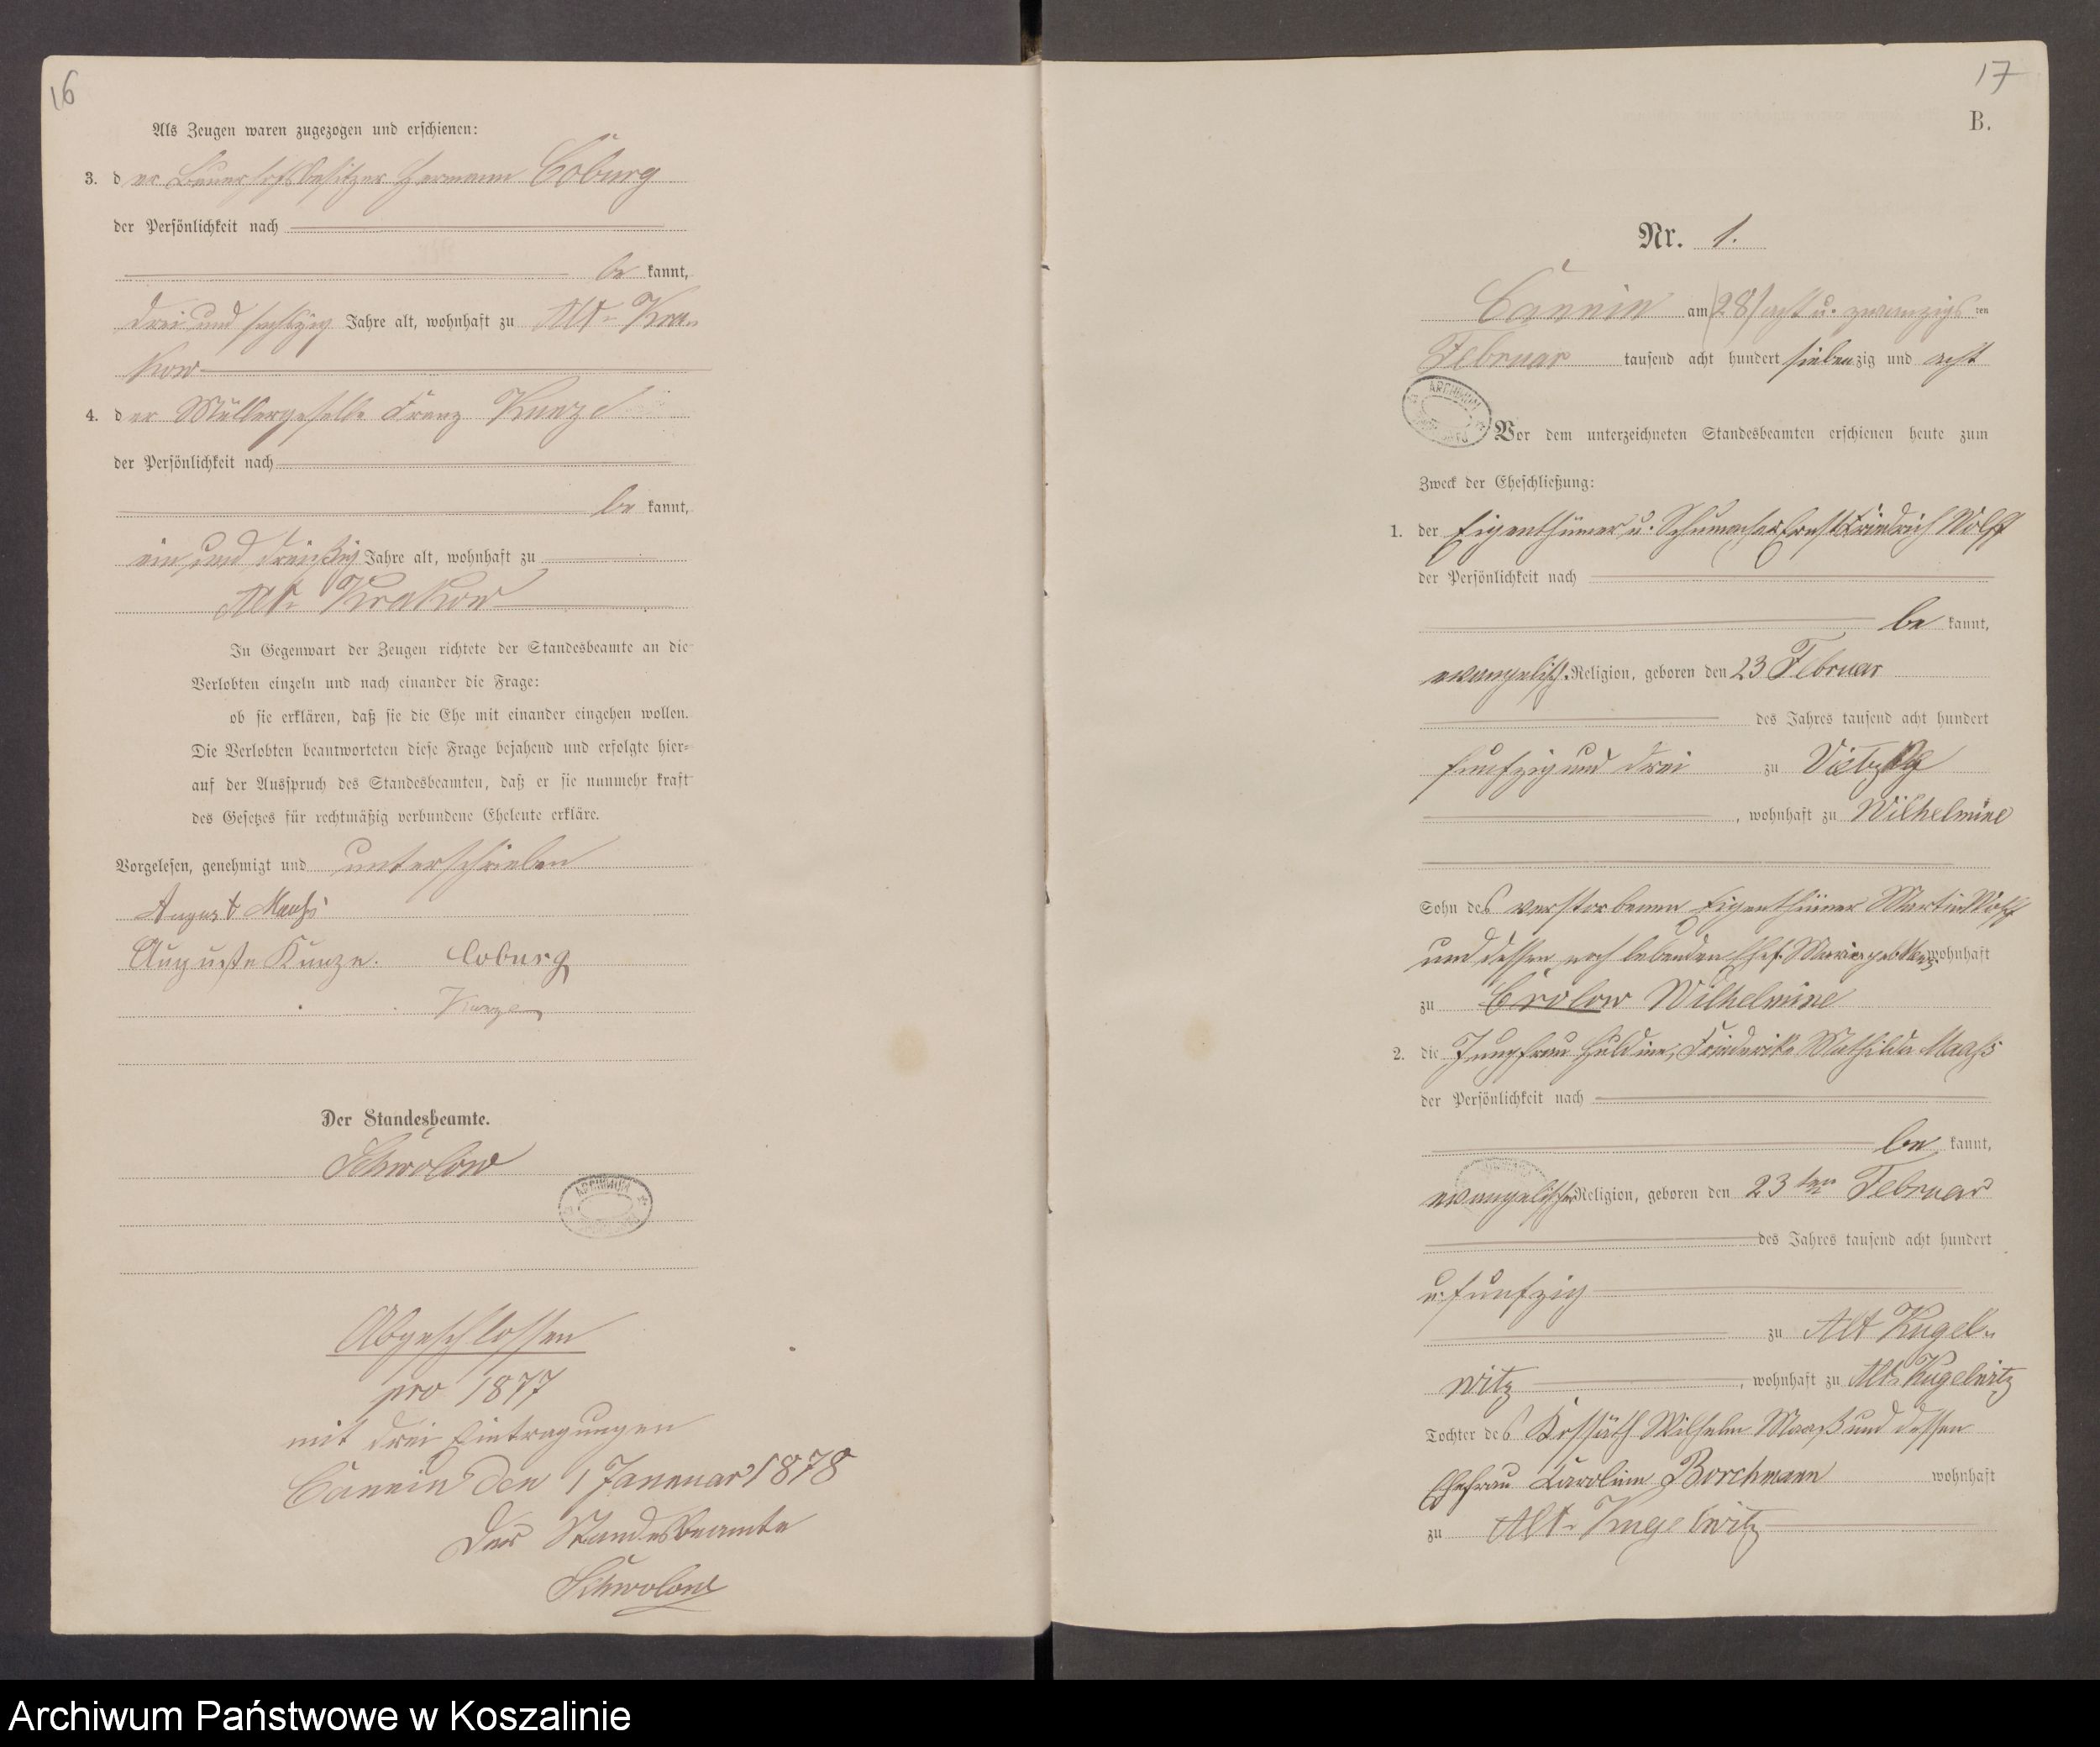 16
Als Zeugen waren zugezogen und erschienen:
3. der Bauerhofsbesitzer Hermann Coburg
der Persönlichkeit nach
be kannt,
drei und sechszig Jahre alt, wohnhaft zu Alt-Kra-
kow
4. der Müllergeselle Franz Kunze
der Persönlichkeit nach
be kannt,
ein und dreißig Jahre alt, wohnhaft zu
Alt-Krakow
In Gegenwart der Zeugen richtete der Standesbeamte an die
Verlobten einzeln und nach einander die Frage:
ob sie erklären, daß sie die Ehe mit einander eingehen wollen.
Die Verlobten beantworteten diese Frage bejahend und erfolgte hier-
auf der Ausspruch des Standesbeamten, daß er sie nunmehr kraft
des Gesetzes für rechtmäßig verbundene Eheleute erkläre.
Vorgelesen, genehmigt und unterschrieben
August Maaß
Auguste Kunze. Coburg
Kunze
Der Standesbeamte.
Schwolow
ARCHIWUM
Abgeschlossen
pro 1877
mit drei Eintragungen
Cannin den 1 Januar 1878
Der Standesbeamte
Schwolow
17
B.
Nr. 1.
Cannin am (28) acht u. zwanzigsten
Februar tausend acht hundert siebenzig und acht
ARCHIWUM
Vor dem unterzeichneten Standesbeamten erschienen heute zum
Zweck der Eheschließung:
1. der Eigenthümer u. Schumacher Ernst Friedrich Wolff
der Persönlichkeit nach
be kannt,
evangelisch. Religion, geboren den 23 Februar
des Jahres tausend acht hundert
funfzig und drei zu Vietzke
, wohnhaft zu Wilhelmine
Sohn des verstorbenen Eigenthümer Martin Wolff
und dessen noch lebenden Ehef. Marie geb. wohnhaft
zu Crolow Wilhelmine
2. die Jungfrau Huldine, Friederike Mathilde Maaß
der Persönlichkeit nach
be kannt,
evangelischer Religion, geboren den 23ten Februar
des Jahres tausend acht hundert
u. funfzig
zu Alt Kugel-
witz , wohnhaft zu Alt Kugelwitz
Tochter des Kossäth Wilhelm Maaß und dessen
Ehefrau Karoline Borchmann wohnhaft
zu Alt-Kugelwitz
Archiwum Państwowe w Koszalinie